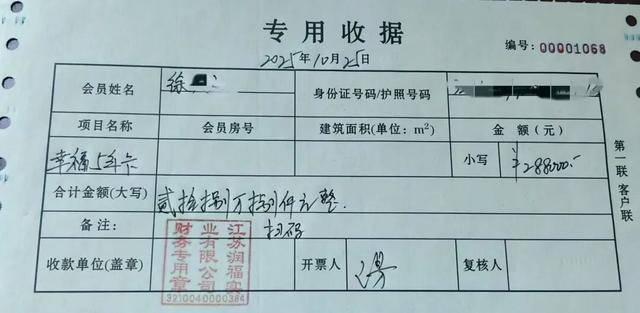 专用收据
编号：00001068
2025年10月25日
会员姓名 徐 身份证号码/护照号码
项目名称 会员房号 建筑面积(单位：m²) 金额（元）
幸福5年卡 小写 ¥288000.-
合计金额(大写) 贰拾捌万捌仟元整.
备注： 扫码
收款单位(盖章) 开票人 复核人
江苏润福实
业有限公司
财务专用章
3210040000384
第一联 客户联